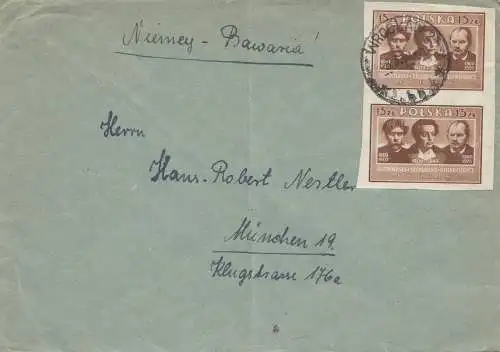 Niemcy - Bawaria!
15 ZŁ POLSKA 15 ZŁ
WROCŁAW
15 ZŁ POLSKA 15 ZŁ
Herrn
Hans-Robert Nestler
München 19.
Klugstrasse 176a